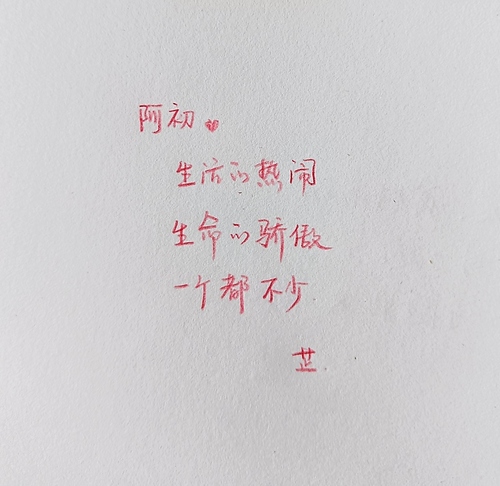 阿初
生活的热闹
生命的骄傲
一个都不少
芷